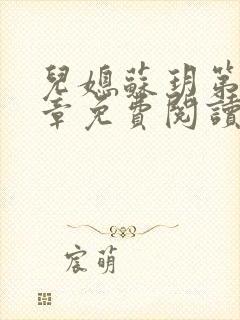 兒媳蘇玥第
章免費閱讀
宸萌